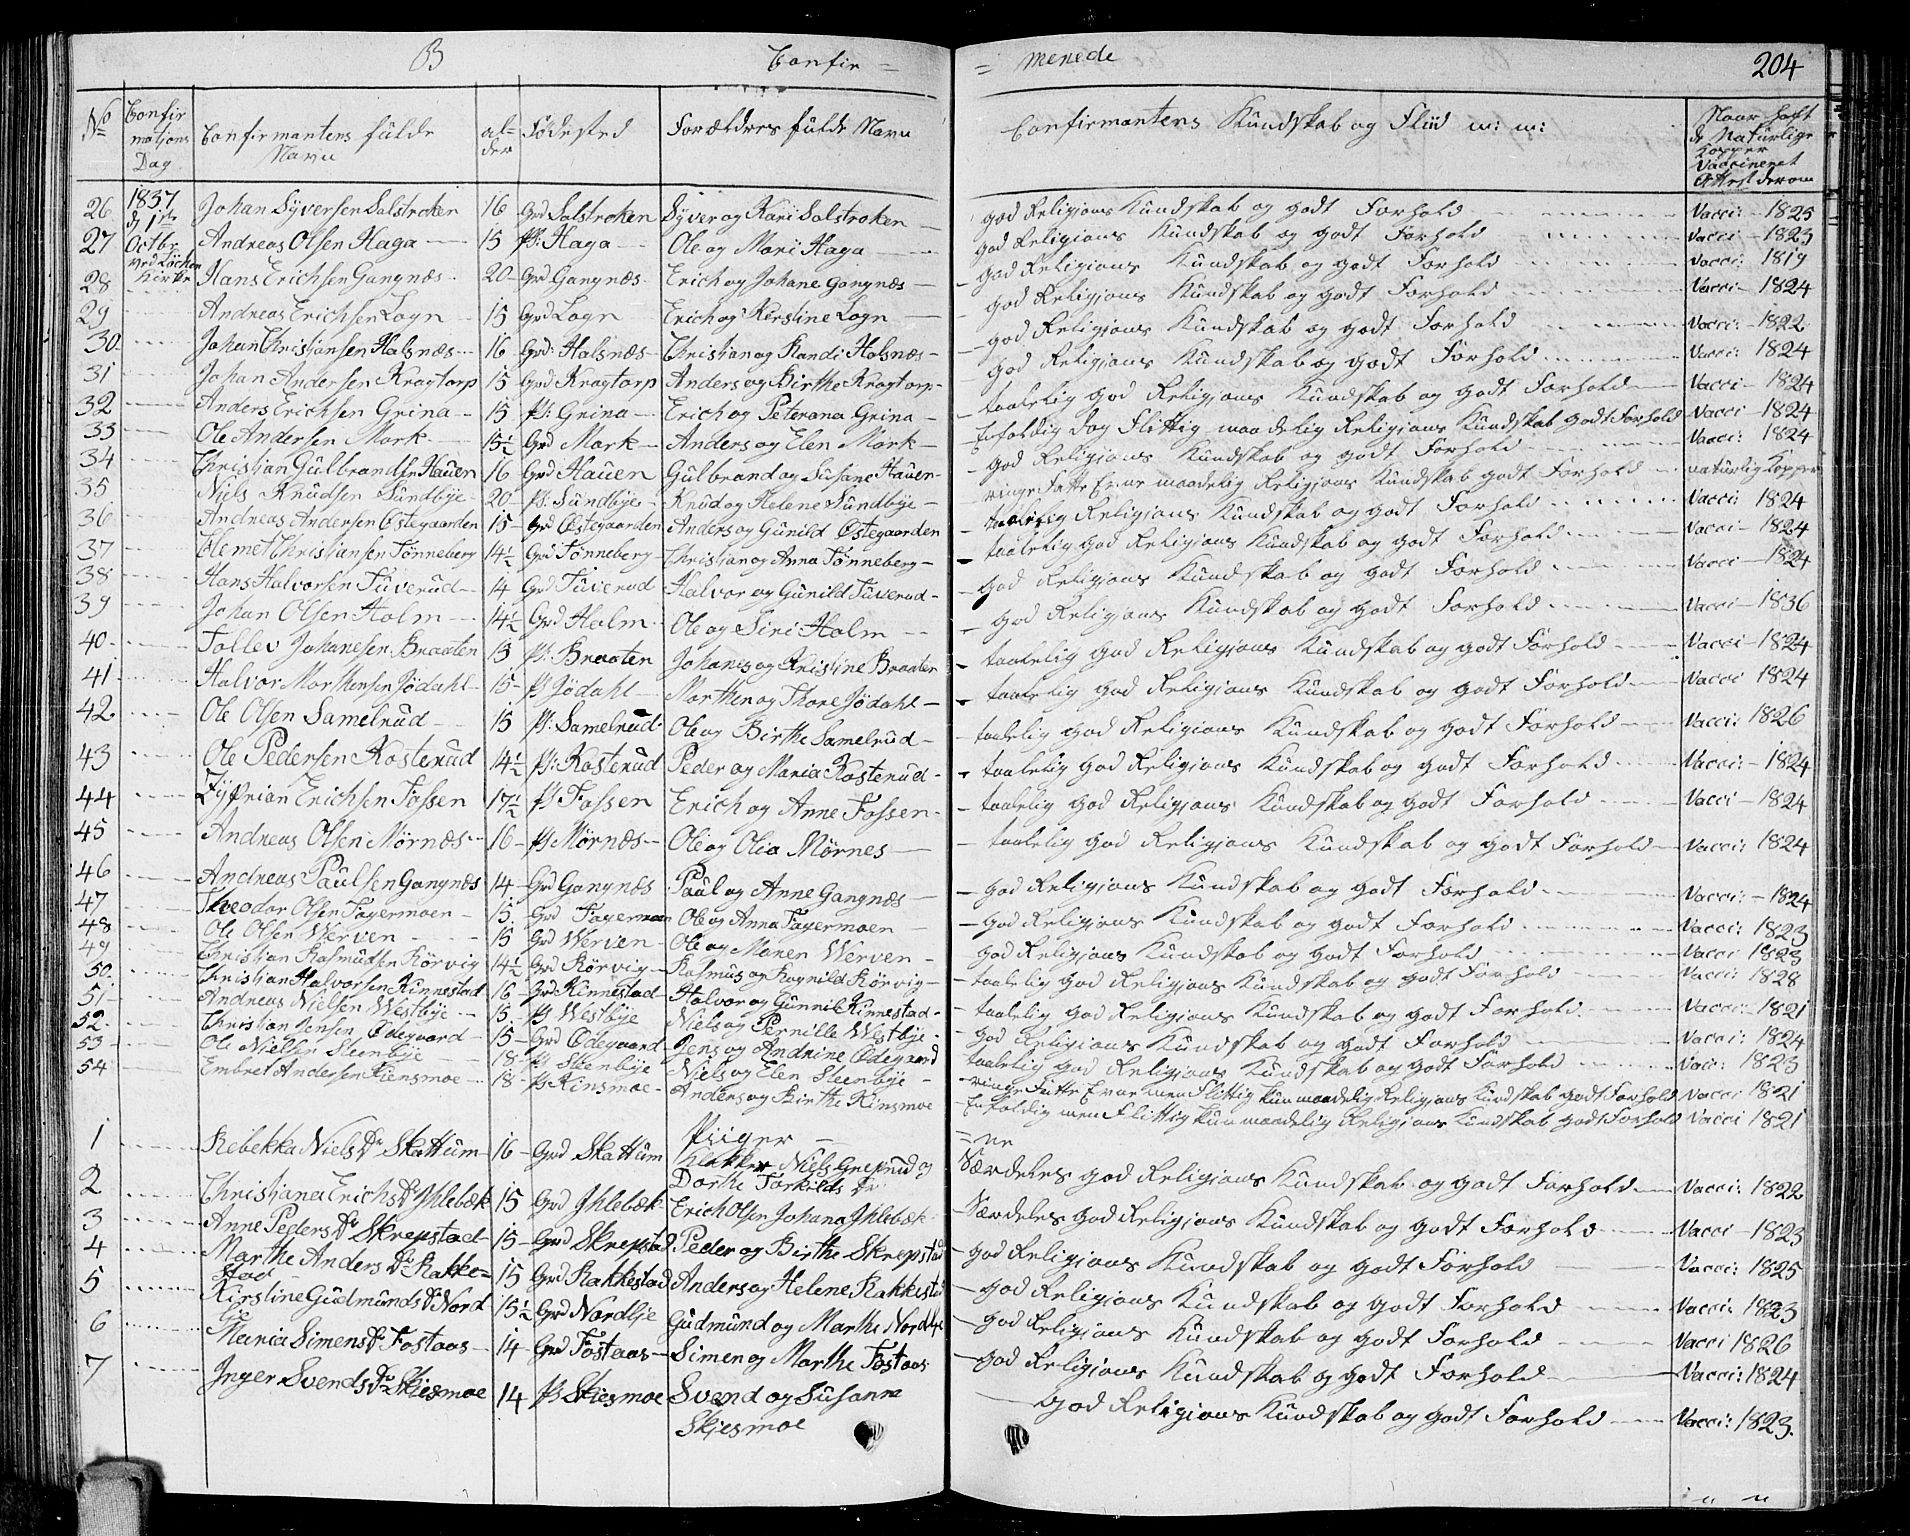 B Confir = = menede 204
No Confirmations Dag Confirmantens fulde Navn alder Fødested Forældres fulde Navn Confirmantens Kundskab og Fliid m: m: Naar haft de Naturlige Kopper Vaccineret Attest derom
1837 d 1ste Octbr ved Løchen Kirke
26 Johan Syversen Solstroken 16 Grd Solstroken Syver og Kari Solstroken god Religjons Kundskab og godt Forhold Vacci: 1825
27 Andreas Olsen Haga 15 Pl: Haga Ole og Mari Haga god Religjons Kundskab og godt Forhold Vacci 1823
28 Hans Erichsen Gangnæs 20 Grd Gangnæs Erich og Johane Gangnæs god Religjons Kundskab og godt Forhold Vacci: 1819
29 Andreas Erichsen Logn 15 Grd Logn Erich og Kerstine Logn god Religjons Kundskab og godt Forhold Vacci 1824
30 Johan Christjansen Halsnæs 16 Grd: Halsnæs Christian og Randi Halsnæs god Religjons Kundskab og godt Forhold Vacci: 1822
31 Johan Andersen Kragtorp 15 Grd Kragtorp Anders og Birthe Kragtorp god Religjons Kundskab og godt Forhold Vacci: 1824
32 Anders Erichsen Grina 15 Pl: Grina Erich og Peterana Grina taalelig god Religjons Kundskab og godt Forhold Vacci 1824
33 Ole Andersen Mork 15½ Grd Mork Anders og Elen Mork Enfoldig dog Flittig maadelig Religjons Kundskab godt Forhold Vacci 1824
34 Christjan Gulbrandsen Hauen 16 Grd Hauen Gulbrand og Susane Hauen god Religjons Kundskab og godt Forhold Vacci: 1824
35 Niels Knudsen Sundbye 20 Pl: Sundbye Knud og Helene Sundbye ringe Fatte Evne maadelig Religjons Kundskab godt Forhold naturlig Kopper
36 Andreas Andersen Østegaarden 15 Grd Østegaarden Anders og Gunild Østegaarden taalelig Religjons Kundskab og godt Forhold Vacci: 1824
37 Clemet Christiansen Tønneberg 14½ Grd Tønneberg Christian og Anna Tønneberg taalelig god Religjons Kundskab og godt Forhold Vacci 1824
38 Hans Halvorsen Tuverud 14 Grd Tuverud Halvor og Gunild Tuverud god Religjons Kundskab og godt Forhold Vacci 1824
39 Johan Olsen Holm 14½ Grd Holm Ole og Siri Holm god Religjons Kundskab og godt Forhold Vacci 1836
40 Tollev Johanesen Braaten 15 Pl: Braaten Johanes og Kristine Braaten taalelig god Religjons Kundskab og godt Forhold Vacci 1824
41 Halvor Morthensen Jødahl 15 Pl Jødahl Morthen og Thore Jødahl taalelig god Religjons Kundskab og godt Forhold Vacci 1824
42 Ole Olsen Samelrud 15 Pl: Samelrud Ole og Birthe Samelrud taalelig god Religjons Kundskab og godt Forhold Vacci: 1826
43 Ole Pedersen Kosterud 14½ Pl: Kosterud Peder og Maria Kosterud taalelig god Religjons Kundskab og godt Forhold Vacci: 1824
44 Zyprian Erichsen Fossen 17½ Pl Fossen Erich og Anne Fossen taalelig god Religjons Kundskab og godt Forhold Vacci 1824
45 Andreas Olsen Mørnæs 16 Pl Mørnæs Ole og Olia Mørnes taalelig god Religjons Kundskab og godt Forhold Vacci: 1824
46 Andreas Paulsen Gangnæs 14 Grd Gangnæs Paul og Anne Gangnæs god Religjons Kundskab og godt Forhold Vacci: 1824
47 Theodor Olsen Fagermoen 15 Grd Fagermoen Ole og Anna Fagermoen god Religjons Kundskab og godt Forhold Vacci: 1823
48 Ole Olsen Werven 15 Grd Werven Ole og Maren Werven god Religjons Kundskab og godt Forhold Vacci 1823
49 Christian Rasmudsen Rørvig 14½ Grd Rørvig Rasmus og Ragnild Rørvig taalelig god Religjons Kundskab og godt Forhold Vacci: 1828
50 Christian Halvorsen Rinnestad 16 Grd Rinnestad Halvor og Gunnil Rinnestad taalelig god Religjons Kundskab og godt Forhold Vacci 1821
51 Andreas Nielsen Westbye 15 Pl Westbye Niels og Pernille Westbye god Religjons Kundskab og godt Forhold Vacci: 1824
52 Christian Jensen Ødegaard 15 Grd Ødegaard Jens og Andrine Ødegaard taalelig god Religjons Kundskab og godt Forhold Vacc: 1823
53 Ole Nielsen Steenbye 18 Pl Steenbye Niels og Elen Steenbye ringe Fatte Evne men Flittig kun maadelig Religjons Kundskab godt Forhold Vacci 1821
54 Embret Andersen Kinsmoe 18 Pl Kinsmoe Anders og Birthe Kinsmoe Enfoldig men Flittig kun maadelig Religjons Kundskab godt Forhold Vacci 1821
Piiger = ne
1 Rebekka Niels Dr Skattum 16 Grd Skattum Klokker Niels Greprud og Dorthe Torkilds Dr Særdeles god Religjons Kundskab og godt Forhold Vacci: 1822
2 Christiana Erichs Dr Ihlebæk 15 Grd Ihlebæk Erich Olsen Johana Ihlebæk Særdeles god Religjons Kundskab og godt Forhold Vacci 1823
3 Anne Peders Dr Skrepstad 15 Grd Skrepstad Peder og Birthe Skrepstad god Religjons Kundskab og godt Forhold Vacci: 1825
4 Marthe Anders Dr Rakkestad 15 Grd Rakkestad Anders og Helene Rakkestad god Religjons Kundskab og godt Forhold Vacci: 1823
5 Kirstine Gudmunds Dr Nord 15½ Grd Nordbye Gudmund og Marthe Nordbye god Religjons Kundskab og godt Forhold Vacci 1826
6 Maria Simens Dr Fostaas 14 Grd Fostaas Simen og Marthe Fostaas god Religjons Kundskab og godt Forhold Vacci: 1824
7 Inger Svends Dr Skiesmoe 14 Pl Skiesmoe Svend og Susanne Skjesmoe god Religjons Kundskab og godt Forhold Vacci: 1823.